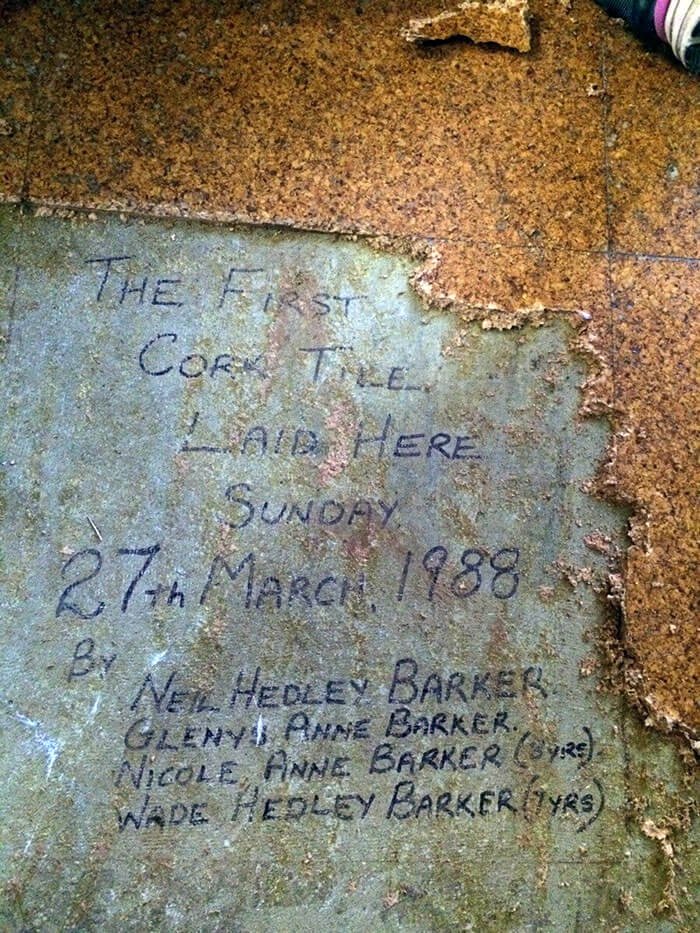 THE FIRST
CORK TILE
LAID HERE
SUNDAY
27th MARCH, 1988
BY
NEIL HEDLEY BARKER.
GLENYS ANNE BARKER.
NICOLE ANNE BARKER (9YRS)
WADE HEDLEY BARKER (7YRS)